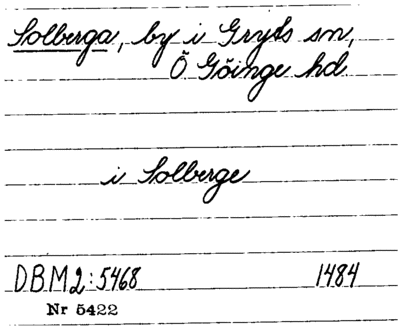 Solberga, by i Gryts sn,
Ö Göinge hd
i Solberge
DBM2:5468 1484
Nr 5422